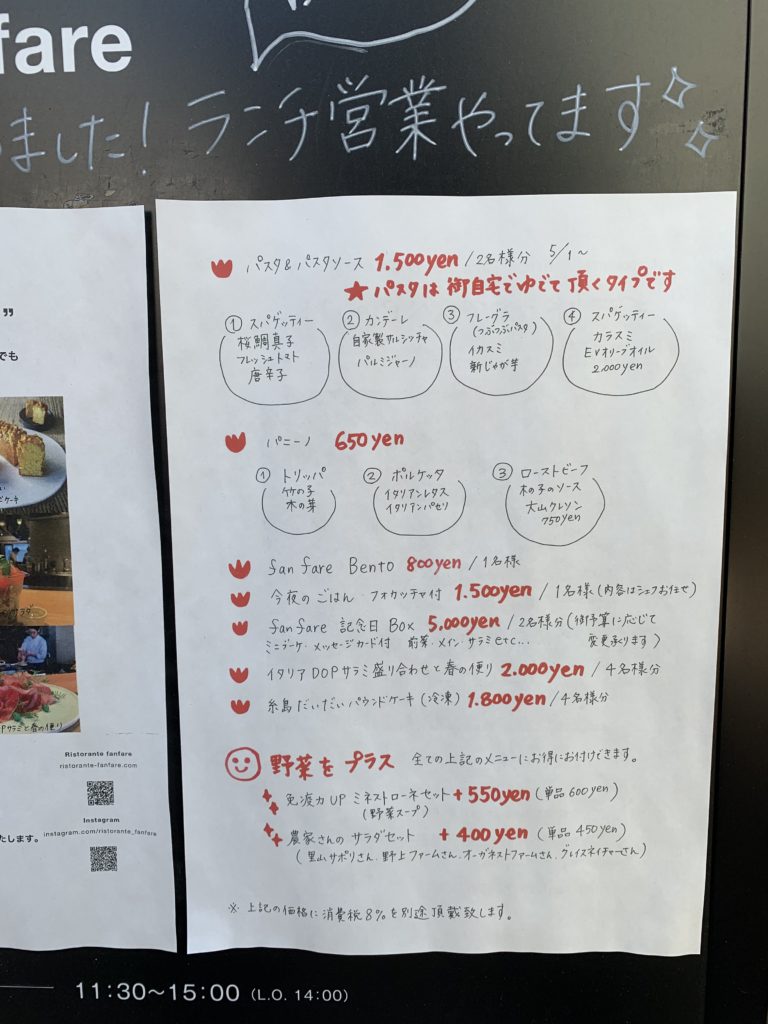 fare
ました! ランチ営業やってます
パスタ&パスタソース 1.500yen / 2名様分 5/1~
★ パスタは 御自宅でゆでて 頂くタイプです
① スパゲッティー
桜鯛真子
フレッシュトマト
唐辛子
② カンデーレ
自家製サルシッチャ
パルミジャーノ
③ フレーグラ
(つぶつぶパスタ)
イカスミ
新じゃが芋
④ スパゲッティー
カラスミ
EVオリーブオイル
2.000yen
パニーノ 650yen
① トリッパ
竹の子
木の芽
② ポルケッタ
イタリアンレタス
イタリアンパセリ
③ ローストビーフ
木の子のソース
大山クレソン
750yen
fan fare Bento 800yen / 1名様
今夜のごはん・フォカッチャ付 1.500yen / 1名様(内容はシェフお任せ)
fanfare 記念日 Box 5.000yen / 2名様分(御予算に応じて
ミニブーケ・メッセージカード付 前菜・メイン・サラミ etc... 変更承ります)
イタリアDOPサラミ盛り合わせと春の便り 2.000yen / 4名様分
糸島だいだいパウンドケーキ(冷凍) 1.800yen / 4名様分
野菜を プラス 全ての上記のメニューにお得にお付けできます。
免疫力UP ミネストローネセット + 550yen (単品 600yen)
(野菜スープ)
農家さんの サラダセット + 400yen (単品 450yen)
(里山サポリさん、野上ファームさん、オーガネストファームさん、グレイスネイチャーさん)
※ 上記の価格に消費税8%を別途頂戴致します。
"
でも
ケーキ
サラダ
Pサラミと春の便り
Ristorante fanfare
ristorante-fanfare.com
Instagram
instagram.com/ristorante_fanfare
たします。
11:30~15:00 (L.O. 14:00)